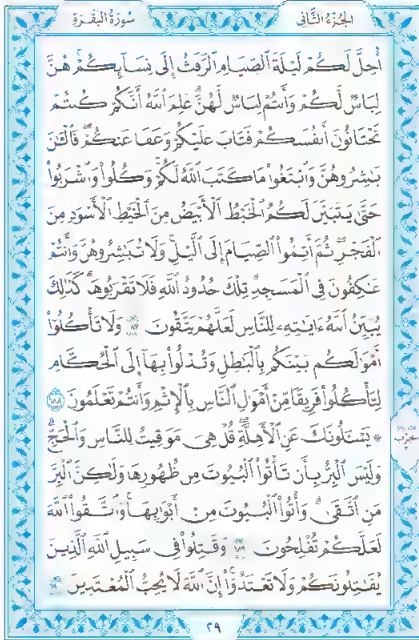 الجزء الثاني سورة البقرة
أُحِلَّ لَكُمْ لَيْلَةَ ٱلصِّيَامِ ٱلرَّفَثُ إِلَىٰ نِسَآئِكُمْ ۚ هُنَّ
لِبَاسٌ لَّكُمْ وَأَنتُمْ لِبَاسٌ لَّهُنَّ ۗ عَلِمَ ٱللَّهُ أَنَّكُمْ كُنتُمْ
تَخْتَانُونَ أَنفُسَكُمْ فَتَابَ عَلَيْكُمْ وَعَفَا عَنكُمْ ۖ فَٱلْـَٰٔنَ
بَـٰشِرُوهُنَّ وَٱبْتَغُوا۟ مَا كَتَبَ ٱللَّهُ لَكُمْ ۚ وَكُلُوا۟ وَٱشْرَبُوا۟
حَتَّىٰ يَتَبَيَّنَ لَكُمُ ٱلْخَيْطُ ٱلْأَبْيَضُ مِنَ ٱلْخَيْطِ ٱلْأَسْوَدِ مِنَ
ٱلْفَجْرِ ۖ ثُمَّ أَتِمُّوا۟ ٱلصِّيَامَ إِلَى ٱلَّيْلِ ۚ وَلَا تُبَـٰشِرُوهُنَّ وَأَنتُمْ
عَـٰكِفُونَ فِى ٱلْمَسَـٰجِدِ ۗ تِلْكَ حُدُودُ ٱللَّهِ فَلَا تَقْرَبُوهَا ۗ كَذَٰلِكَ
يُبَيِّنُ ٱللَّهُ ءَايَـٰتِهِۦ لِلنَّاسِ لَعَلَّهُمْ يَتَّقُونَ ١٨٧ وَلَا تَأْكُلُوٓا۟
أَمْوَٰلَكُم بَيْنَكُم بِٱلْبَـٰطِلِ وَتُدْلُوا۟ بِهَآ إِلَى ٱلْحُكَّامِ
لِتَأْكُلُوا۟ فَرِيقًا مِّنْ أَمْوَٰلِ ٱلنَّاسِ بِٱلْإِثْمِ وَأَنتُمْ تَعْلَمُونَ ١٨٨
۞ يَسْـَٔلُونَكَ عَنِ ٱلْأَهِلَّةِ ۖ قُلْ هِىَ مَوَٰقِيتُ لِلنَّاسِ وَٱلْحَجِّ ۗ
وَلَيْسَ ٱلْبِرُّ بِأَن تَأْتُوا۟ ٱلْبُيُوتَ مِن ظُهُورِهَا وَلَـٰكِنَّ ٱلْبِرَّ
مَنِ ٱتَّقَىٰ ۗ وَأْتُوا۟ ٱلْبُيُوتَ مِنْ أَبْوَٰبِهَا ۚ وَٱتَّقُوا۟ ٱللَّهَ
لَعَلَّكُمْ تُفْلِحُونَ ١٨٩ وَقَـٰتِلُوا۟ فِى سَبِيلِ ٱللَّهِ ٱلَّذِينَ
يُقَـٰتِلُونَكُمْ وَلَا تَعْتَدُوٓا۟ ۚ إِنَّ ٱللَّهَ لَا يُحِبُّ ٱلْمُعْتَدِينَ ١٩٠
٢٩